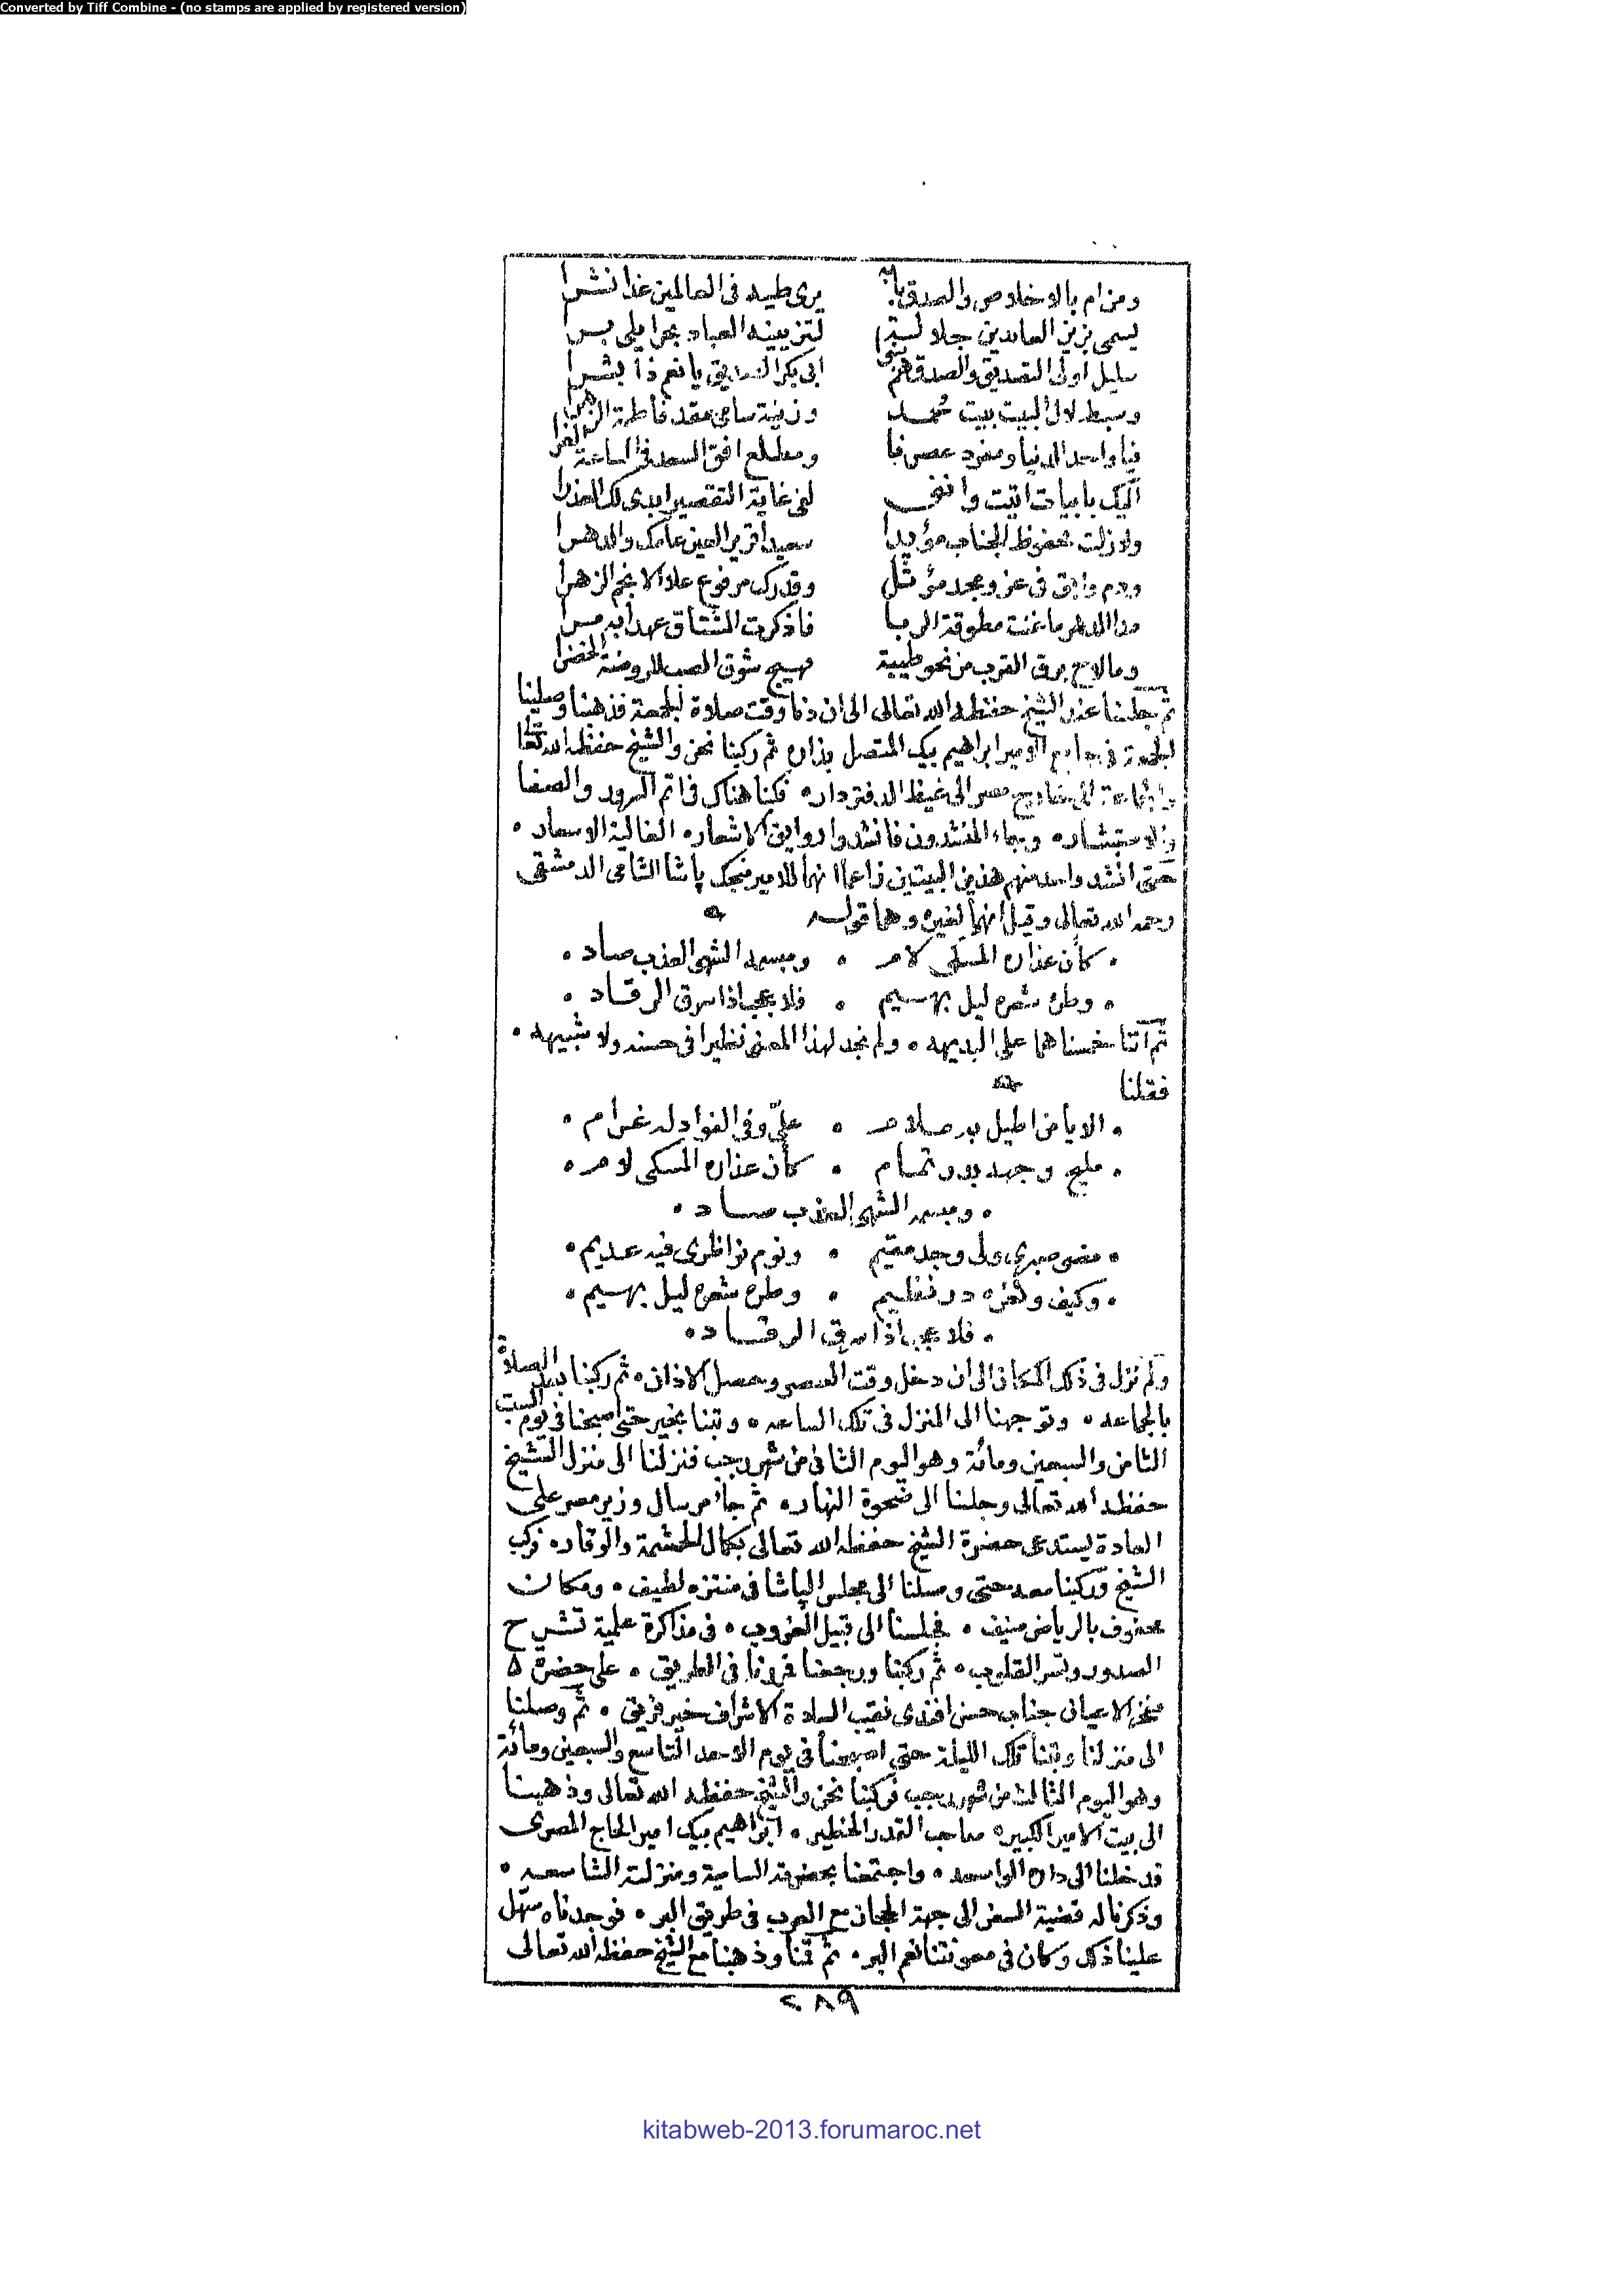 Converted by Tiff Combine - (no stamps are applied by registered version)
ومن ام بالاخلاص والصدق بابه يرى طيه في العالمين غدا نشرا
يسمى بزين العابدين جلالة لتزيينه العباد بحرا يلى بسرا
سليل اولى التصديق والصدق من بنى ابى بكر الصديق يا نعم ذا بشرا
وسبط لال البيت بيت محمد وزينة سامى عقد فاطمة الزهرا
فيا واحد الدنيا ومفرد عصرنا ومطلع افق السعد في الساعة الغرا
اليك بابيات اتيت واننى لفى غاية التقصير ابدى لك العذرا
ولا زلت محفوظ الجناب مؤيدا سعيدا قرير العين عامك والدهرا
ودم وابق في عز ومجد مؤثل وقدرك مرفوع علا الانجم الزهرا
مدا الدهر ما غنت مطوقة الربا فاذكرت المشتاق عهدا به مسرا
وما لاح برق القرب من نحو طيبة فهيج شوق الصب للروضة الخضرا
ثم جلسنا عند الشيخ حفظه الله تعالى الى ان دنا وقت صلاة الجمعة فذهبنا وصلينا
الجمعة في جامع الامير ابراهيم بيك المتصل بداره ثم ركبنا نحن والشيخ حفظه الله تعا
والجماعة الى خارج مصر الى غيط الدفتردار • فكنا هناك في اتم السرور والصفا
والاستبشار • وجاء المنشدون فانشدوا روايق الاشعار • الغالية الاسعار •
حتى انشد واحد منهم هذين البيتين زاعما انهما للامير منجك باشا الشامى الدمشقى
رحمه الله تعالى وقيل انهما لغيره وهما قوله
• كأن عذاره المسكى لام • ومبسمه الشهى العذب صاد •
• وطرة شعره ليل بهيم • فلا عجب اذا سرق الرقاد •
ثم اننا خمسناهما على البديهه • ولم نجد لهذا المعنى نظيرا في حسنه ولا شبيهه •
فقلنا
• الا يا من اطيل به ملام • علىّ وفي الفواد له غرام •
• مليح وجهه بدر تمام • كأن عذاره المسكى لام •
• ومبسمه الشهى العذب صاد •
• مضى صبرى ولى وجد مقيم • ونوم نواظرى فيه عديم •
• وكيف وثغره در نظيم • وطرة شعره ليل بهيم •
• فلا عجب اذا سرق الرقاد •
ولم نزل في ذلك المكان الى ان دخل وقت العصر وحصل الاذان • ثم ركبنا بعد الصلاة
بالجماعه • وتوجهنا الى المنزل في تلك الساعه • وبتنا بخير حتى اصبحنا في يوم السبت
الثامن والسبعين ومائة وهو اليوم الثانى من شهر رجب فنزلنا الى منزل الشيخ
حفظه الله تعالى وجلسنا الى ضحوة النهار • ثم جاء مرسال وزير مصر على
العادة يستدعى حضرة الشيخ حفظه الله تعالى بكمال الحشمة والوقار • فركب
الشيخ وركبنا معه حتى وصلنا الى مجلس الباشا في منتزه لطيف • ومكان
محفوف بالرياض منيف • فجلسنا الى قبيل الغروب • في مذاكرة علمية تشرح
الصدور وتسر القلوب • ثم ركبنا ورجعنا فمررنا في الطريق • على حضرة
مفخر الاعيان جناب حسن افندى نقيب السادة الاشراف خير فريق • ثم وصلنا
الى منزلنا وبتنا تلك الليلة حتى اصبحنا في يوم الاحد التاسع والسبعين ومائة
وهو اليوم الثالث من شهر رجب فركبنا نحن والشيخ حفظه الله تعالى وذهبنا
الى بيت الامير الكبير • صاحب القدر الخطير • ابراهيم بيك امير الحاج المصرى
فدخلنا الى داره الواسعه • واجتمعنا بحضرته السامية ومنزلته الشاسعه •
وذكرنا له قضية السفر الى جهة الحجاز مع العرب في طريق البر • فوجدناه سهّل
علينا ذلك وكان في معونتنا نعم البر • ثم قمنا وذهبنا مع الشيخ حفظه الله تعالى
٢٨٩
kitabweb-2013.forumaroc.net